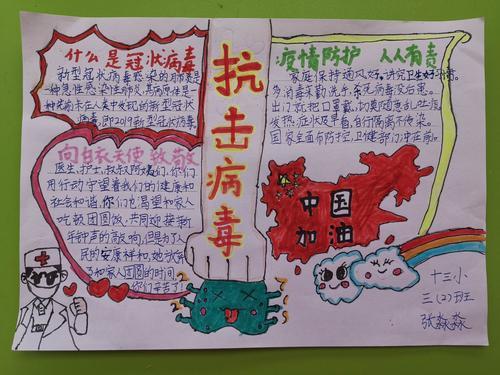 什么是冠状病毒
新型冠状病毒感染的肺炎是
一种急性感染性肺炎,其病原体是一
种先前未在人类中发现的新型冠状
病毒,即2019新型冠状病毒
向白衣天使致敬
医生、护士,叔叔阿姨们,你们
用行动守望着我们的健康和
社会和谐,你们也渴望和家人
吃顿团圆饭,共同迎接新
年钟声的敲响,但是为了人
民的安康祥和,她放弃
了和家人团圆的时间
你们辛苦了!
抗击病毒
疫情防护 人人有责
家庭保持通风好,讲究卫生好习惯,
多消毒来勤洗手,杀灭病毒没后患。
出门就把口罩戴,切莫随意乱吐痰
发热症状及早看,自行隔离不传染。
国家全面布防控,卫健部门冲在前。
中国
加油
十三小
三(2)班
张淼淼